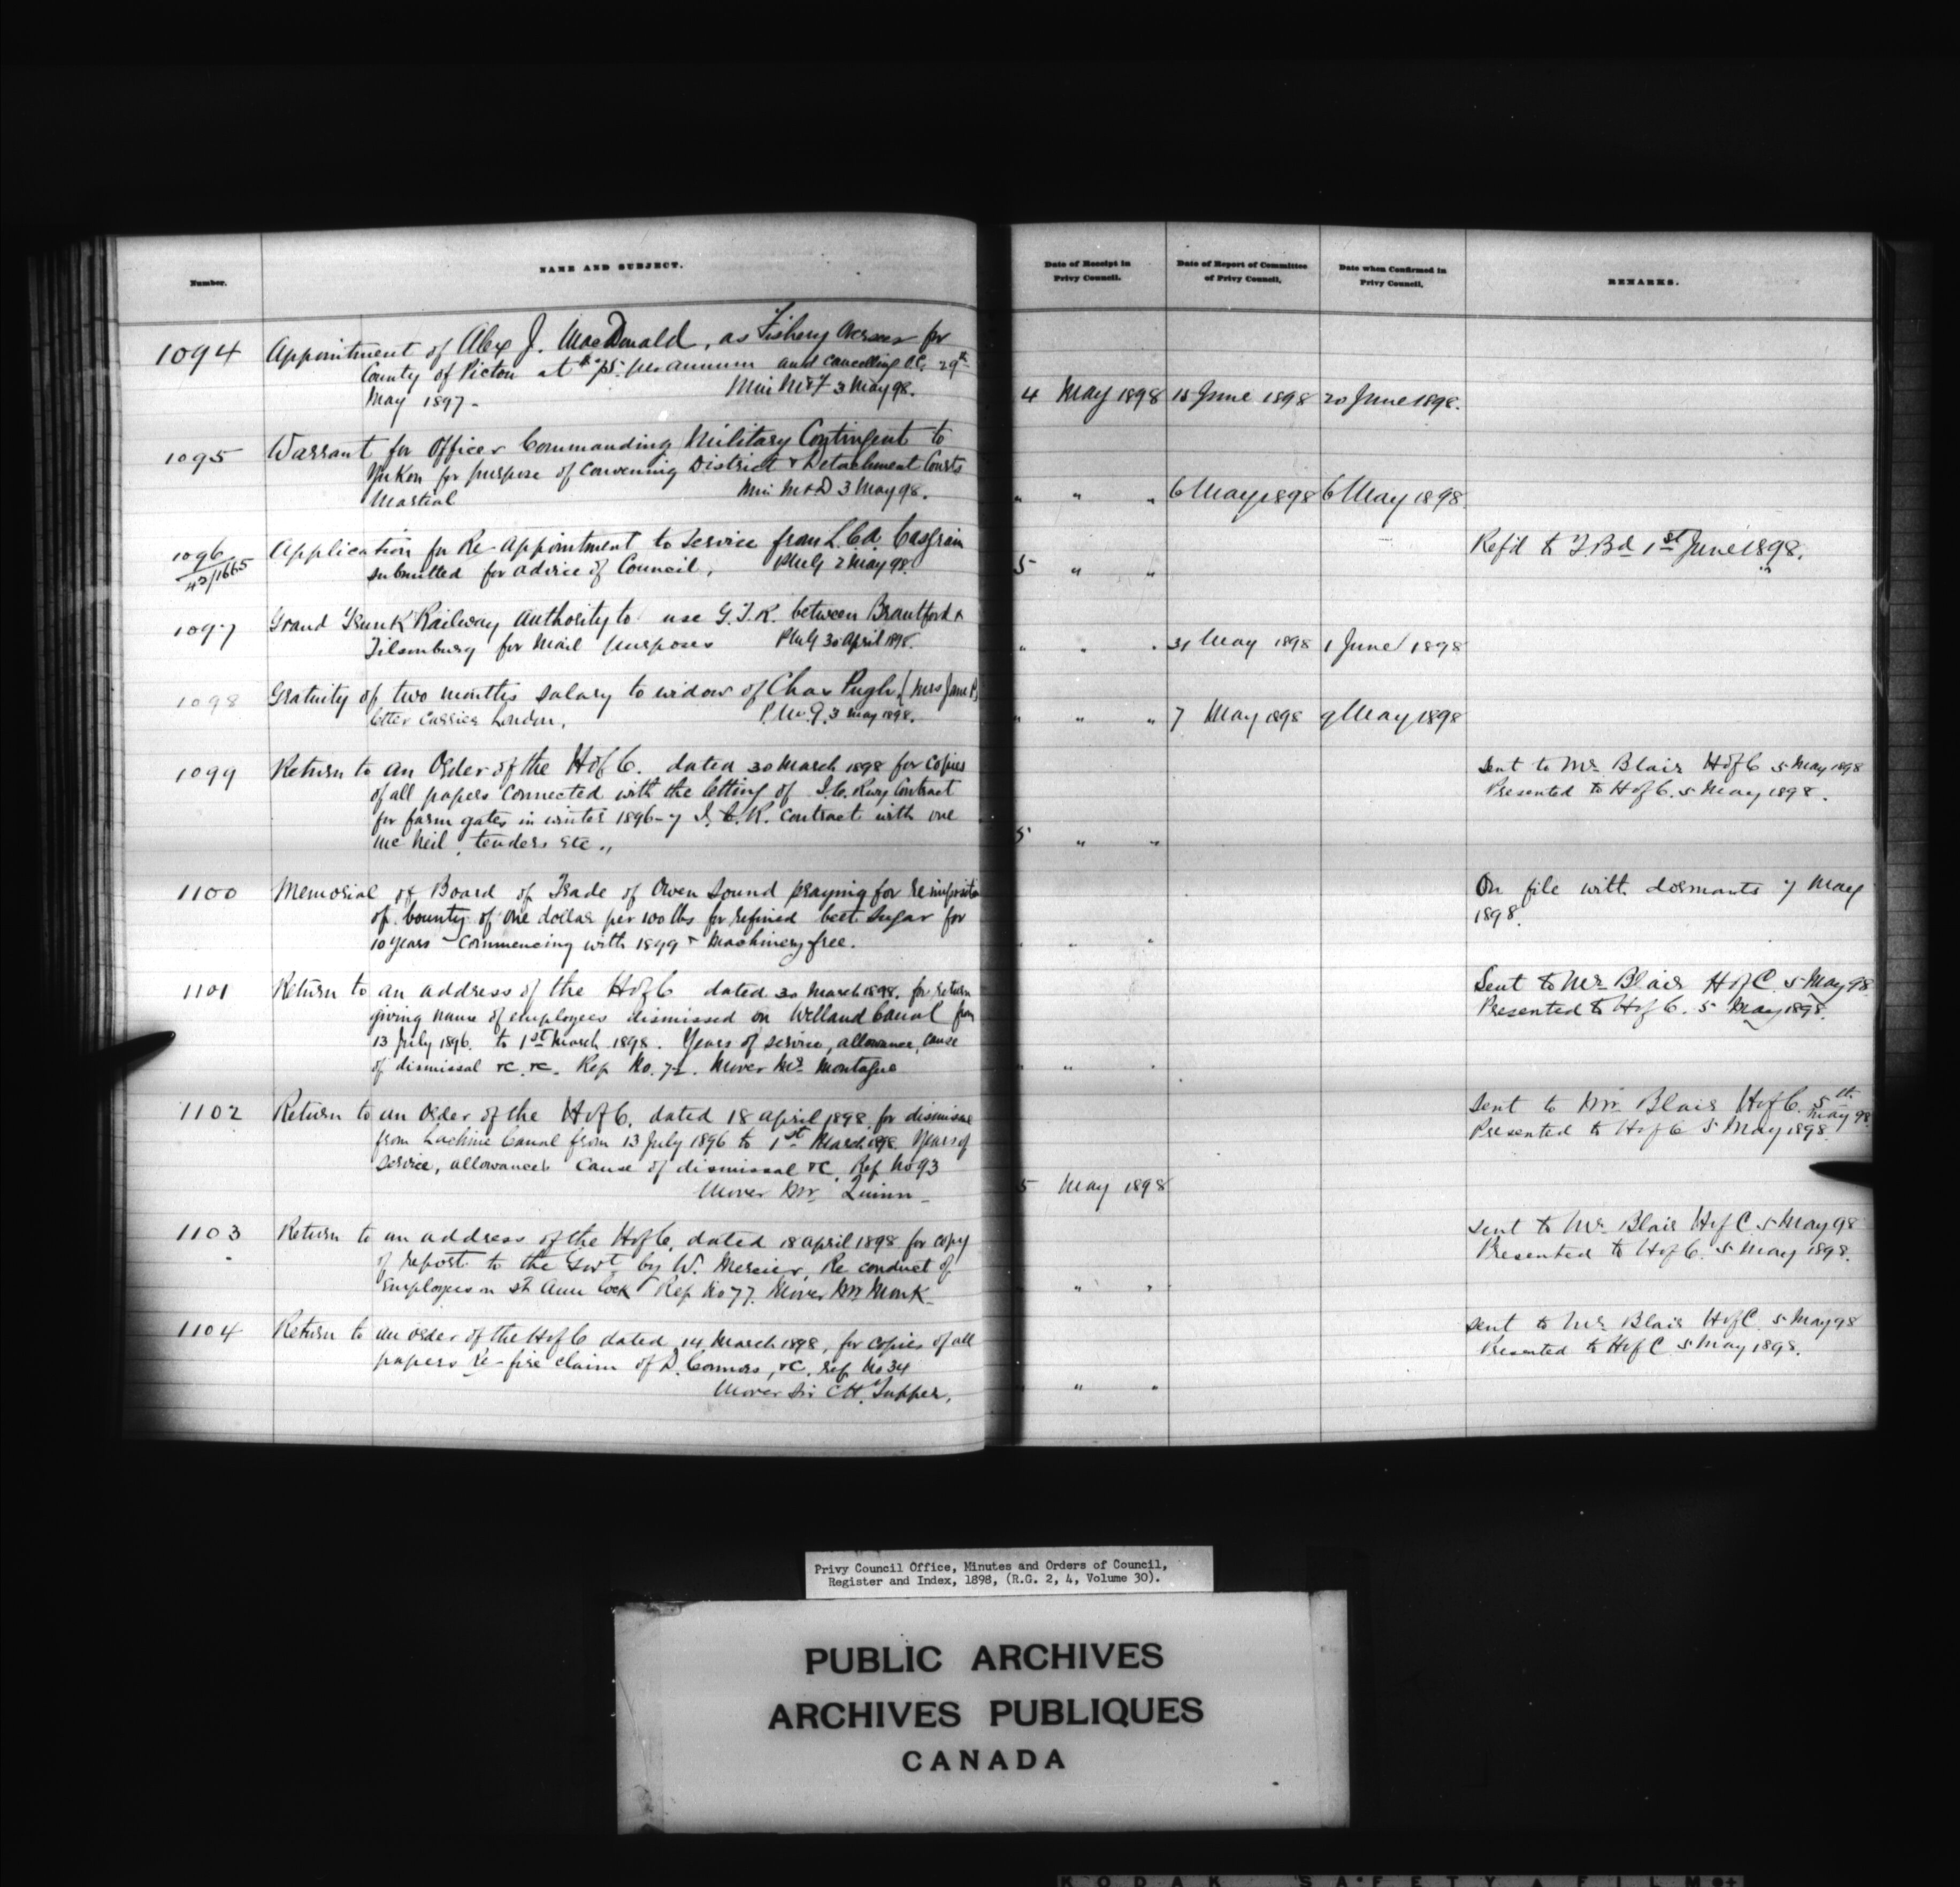 Number.
NAME AND SUBJECT.
Date of Receipt in
Privy Council.
Date of Report of Committee
of Privy Council.
Date when Confirmed in
Privy Council.
REMARKS.
1094 Appointment of Alex J. MacDonald, as Fishery Overseer for
County of Pictou at $75. per annum and cancelling OC. 29th
May 1897- Min M&F 3 May 98.
4 May 1898 18 June 1898 20 June 1898.
1095 Warrant for Officer Commanding Military Contingent to
Yukon for purpose of convening District & Detachment Courts
Martial Min M&D 3 May 98.
" " " 6 May 1898 6 May 1898
1096 Application for Re-appointment to Service from
43/1665 submitted for advice of Council, PMG 2 May 98.
5 " "
Refd to T. Bd 1st June 1898.
1097 Grand Trunk Railway authority to use G.T.R. between Brantford &
Tilsonburg for mail purposes PMG 30 April 1898.
" " " 31 May 1898 1 June 1898
1098 Gratuity of two months salary to widow of Chas Pugh, (Mrs Jane P)
letter carrier London, P.M.G. 3 May 1898.
" " " 7 May 1898 9 May 1898
1099 Return to an Order of the H of C. dated 30 March 1898 for copies
of all papers connected with the letting of I.C. Rwy Contract
for farm gates in winter 1896-7 I.C.R. contract with one
McNeil, tenders etc "
5 " "
Sent to Mr Blair H of C 5 May 1898
Presented to H of C. 5 May 1898.
1100 Memorial of Board of Trade of Owen Sound praying for
of bounty of one dollar per 100 lbs for refined beet sugar for
10 years - commencing with 1899 & Machinery free.
" " "
On file with dormants 7 May
1898.
1101 Return to an address of the H of C dated 30 March 1898. for return
giving name of employees dismissed on Welland Canal from
13 July 1896. to 1st March 1898. Years of service, allowance, cause
of dismissal &c. &c. Rep No. 72. Mover Mr Montague
" " "
Sent to Mr Blair H of C. 5 May 98
Presented to H of C. 5 May 1898.
1102 Return to an Order of the H of C. dated 18 April 1898, for dismissal
from Lachine Canal from 13 July 1896 to 1st March 1898 Years of
service, allowances cause of dismissal &c. Ref No 93
Mover Mr Quinn-
5 May 1898
Sent to Mr Blair H of C. 5th May 98
Presented to H of C 5 May 1898.
1103 Return to an address of the H of C. dated 18 April 1898 for copy
of report to the Govt by W. Mercier, Re conduct of
Employees on St Ann Lock Rep No 77. Mover Mr Monk-
" "
Sent to Mr Blair H of C 5 May 98
Presented to H of C. 5 May 1898.
1104 Return to an order of the H of C dated 14 March 1898, for copies of all
papers re-fire claim of D. Connors, &c. ref No 34
Mover Sir C H. Tupper.
" " "
Sent to Mr Blair H of C. 5 May 98
Presented to H of C 5 May 1898.
Privy Council Office, Minutes and Orders of Council,
Register and Index, 1898, (R.G. 2, 4, Volume 30).
PUBLIC ARCHIVES
ARCHIVES PUBLIQUES
CANADA
KODAK SAFETY FILM